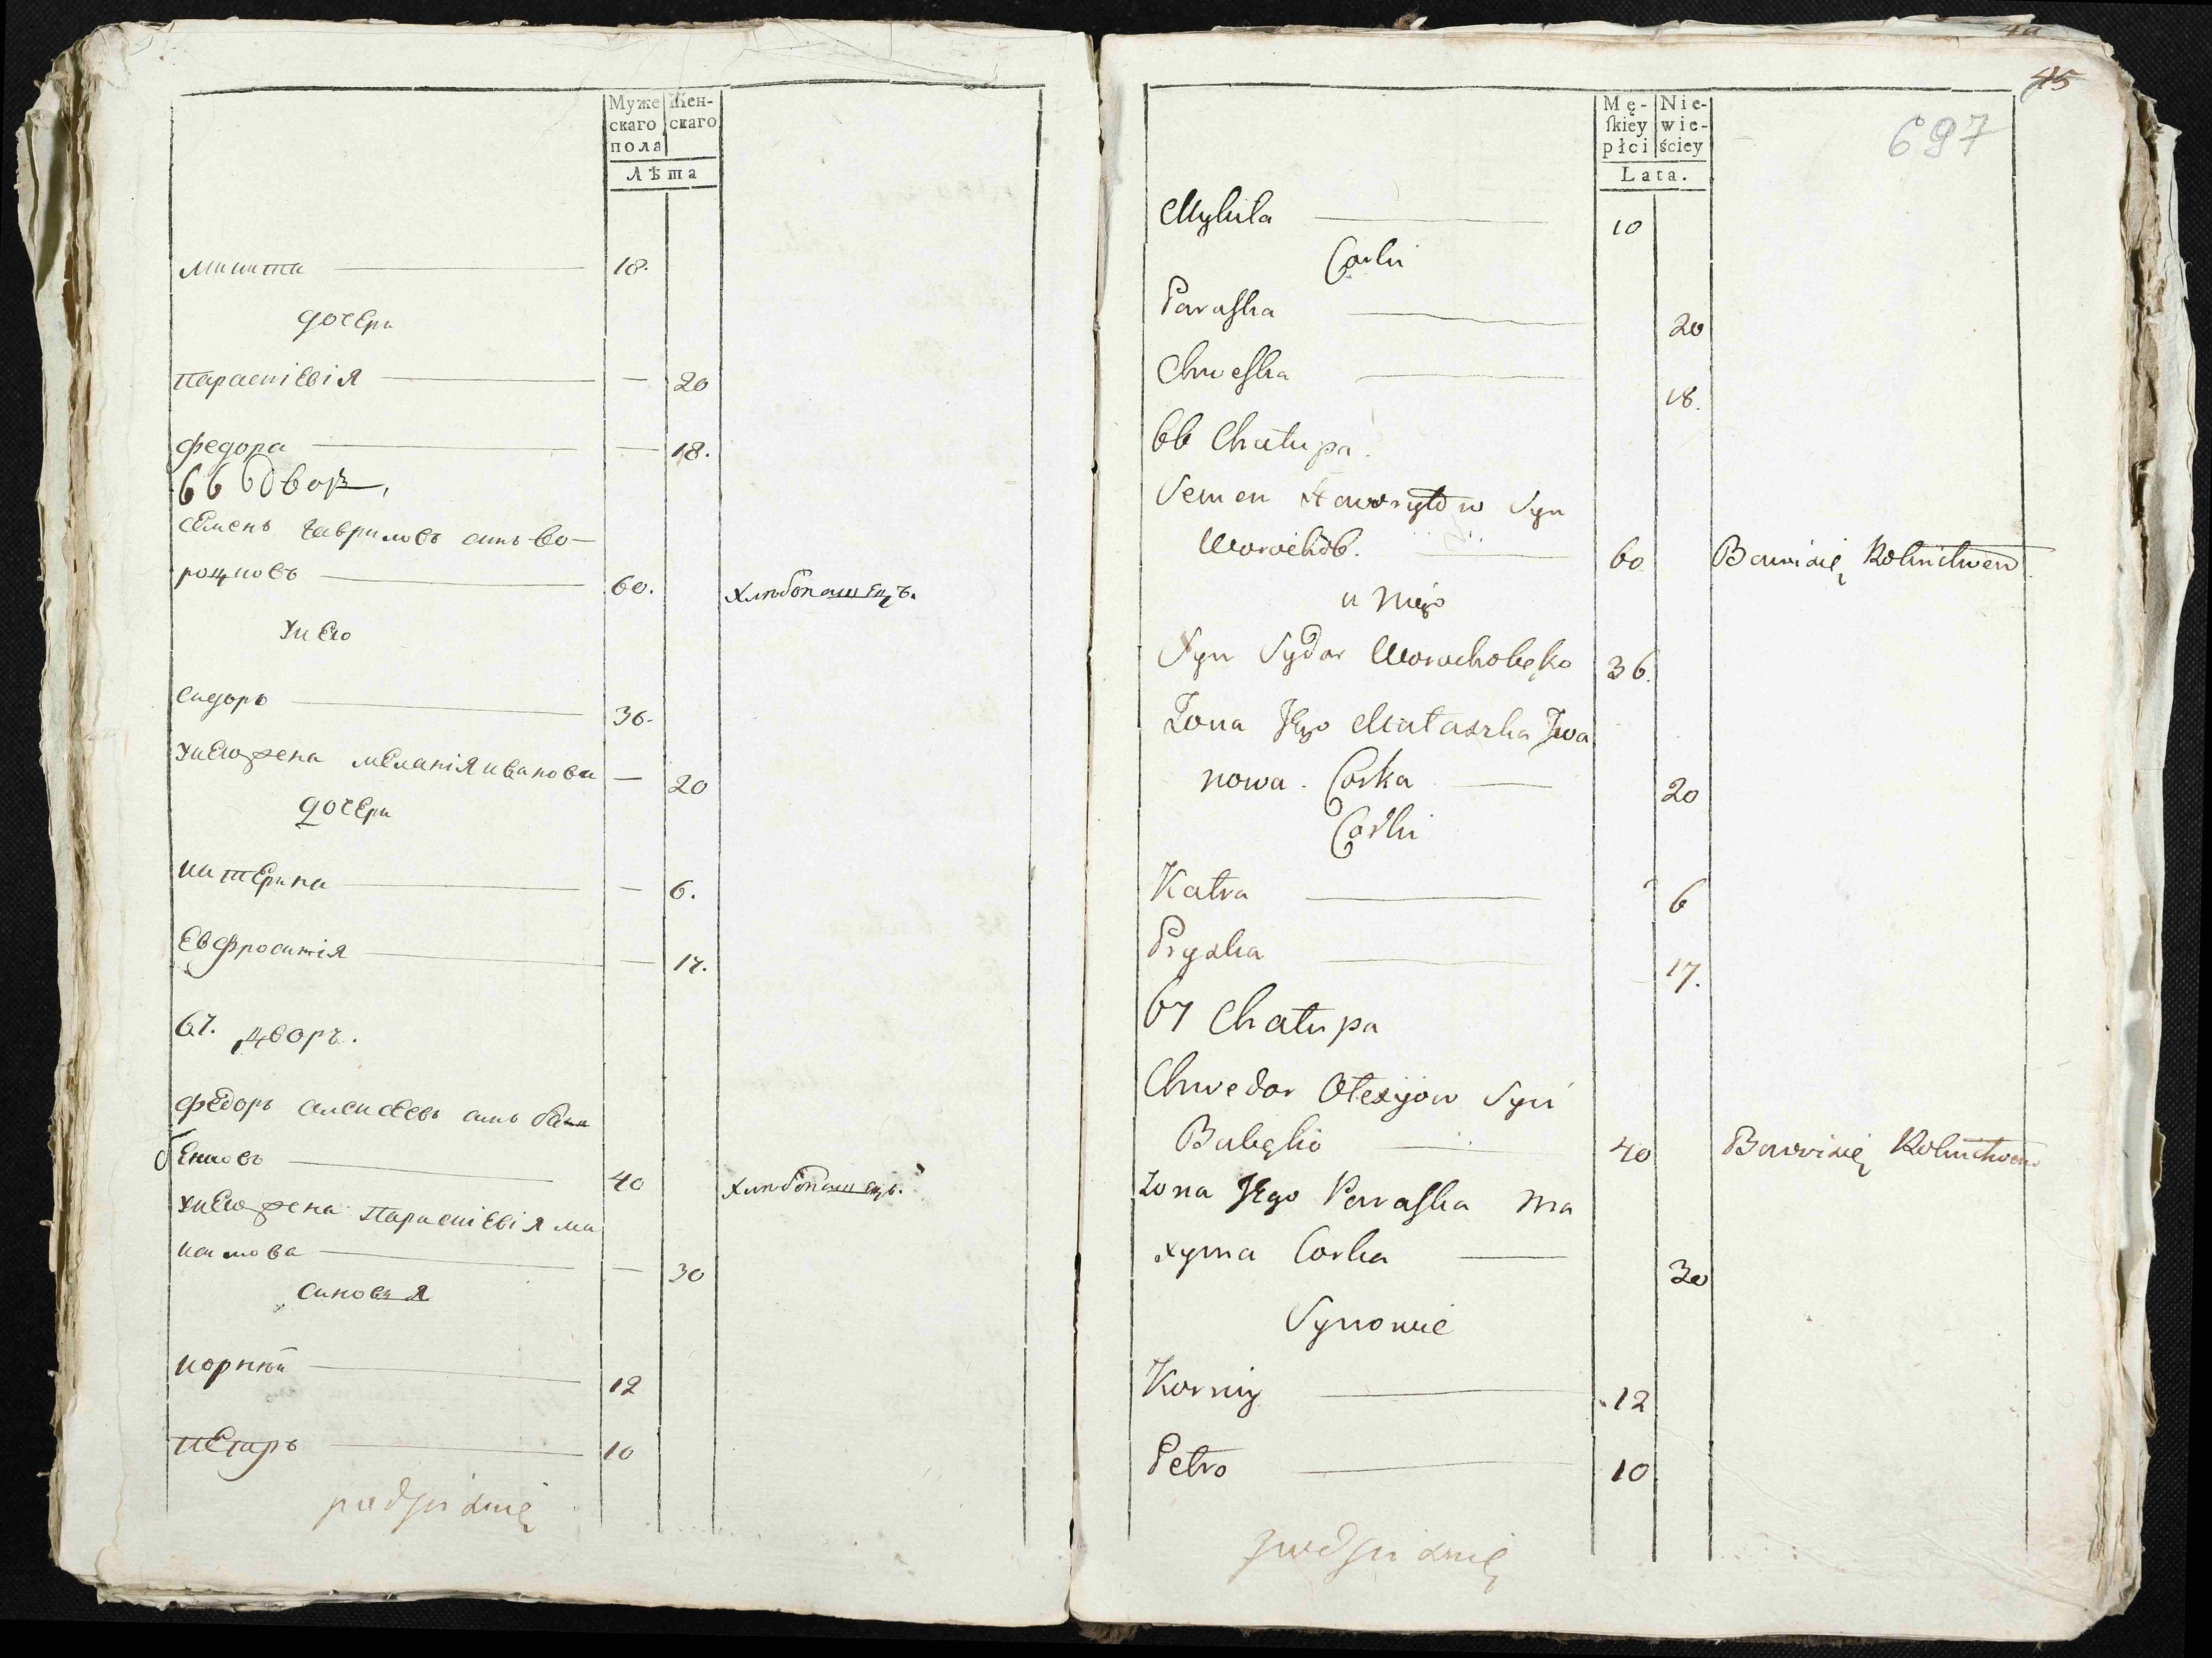 Муже
скаго
пола
Жен-
скаго
Лѣта
Микита — 10.
дочери
Параскіевія — — 20
Федора — — 18.
66 дворъ,
Семенъ Гавриловъ синъ Во-
60. хлѣбопашецъ.
У нево
Сидоръ — 36.
У нево жена Меланія Иванова — 20
дочери
Катерина — — 6.
Евфросинія — — 17.
67. дворъ.
Федоръ Алексеевъ синъ Баби
бенковъ — 40 хлѣбопашецъ.
У нево жена Параскіевія Ма
кимова — — 30
синовья
Корнѣй — 12
Петръ — 10
45
697
Mę-
skiey
płci
Nie-
wie-
ściey
Lata.
Mykita — 10
Corki
Paraska — 20
Chweska — 18.
66 Chałupa
Semen Hawryłow Syn
Worochob. — 60 Bawi się Rolnictwem
u niego
Syn Sydor Worochobęko 36.
Zona Jego Małaszka Iwa
nowa Corka — 20
Corki
Katra — 6
Pryska — 17.
67 Chałupa
Chwedor Olexijow Syn
Babęko — 40 Bawi się Rolnictwem
Zona Jego Paraska Ma
xyma Corka — 30
Synowie
Korniy — 12
Petro — 10